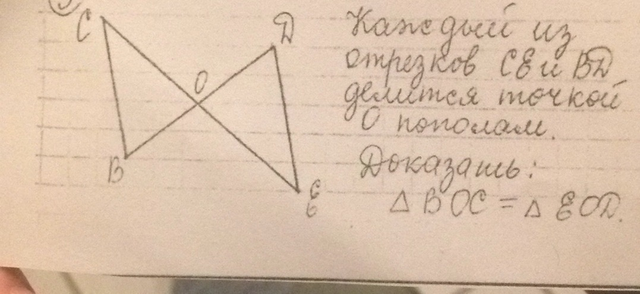 C
D
O
B
E
Каждый из
отрезков CE и BD
делится точкой
O пополам.
Доказать:
△ BOC = △ EOD.